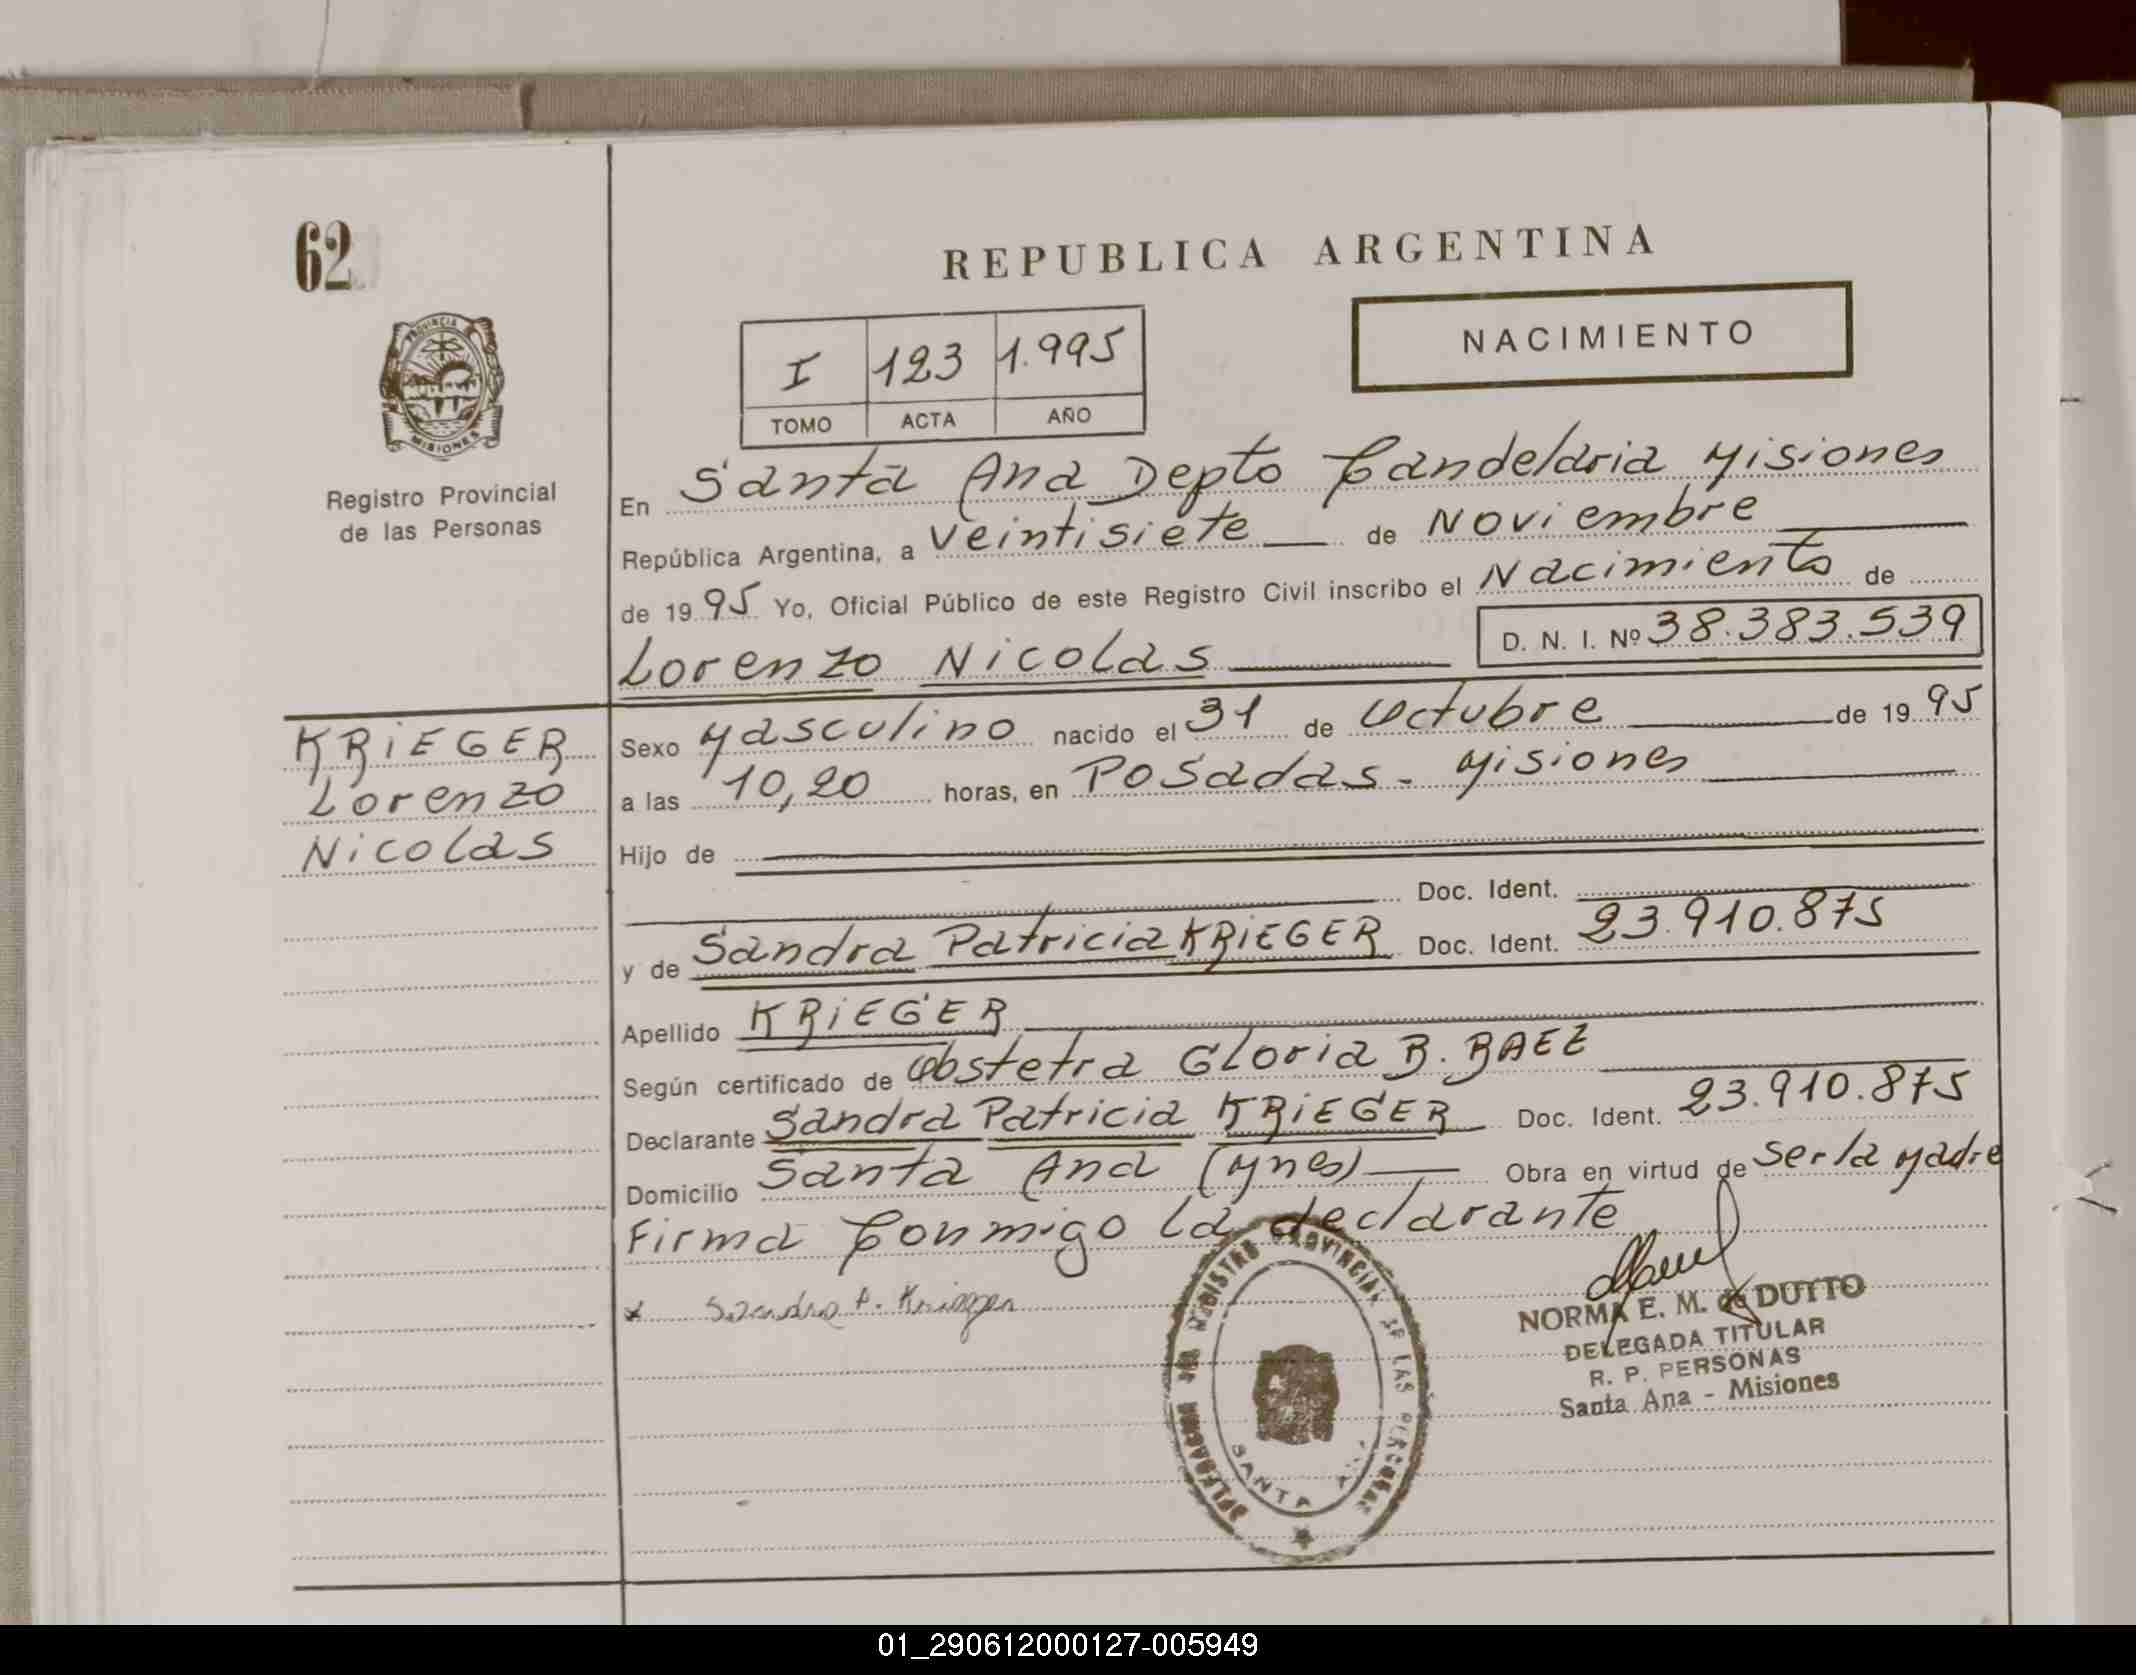 62
PROVINCIA
MISIONES
Registro Provincial
de las Personas
REPUBLICA ARGENTINA
I 123 1.995
TOMO ACTA AÑO
NACIMIENTO
En Santa Ana Depto Candelaria Misiones
República Argentina, a Veintisiete de Noviembre
de 1995 Yo, Oficial Público de este Registro Civil inscribo el Nacimiento de
Lorenzo Nicolas D. N. I. Nº 38.383.539
KRiEGER
Lorenzo
Nicolas
Sexo Masculino nacido el 31 de Octubre de 1995
a las 10,20 horas, en Posadas - Misiones
Hijo de
Doc. Ident.
y de Sandra Patricia KRiEGER Doc. Ident. 23.910.875
Apellido KRiEGER
Según certificado de Obstetra Gloria B. BAEZ
Declarante Sandra Patricia KRiEGER Doc. Ident. 23.910.875
Domicilio Santa Ana (Mnes) Obra en virtud de ser la Madre
Firma Conmigo la declarante
x Sandra P. Krieger
NORMA E. M. de DUTTO
DELEGADA TITULAR
R. P. PERSONAS
Santa Ana - Misiones
PROVINCIAL DE LAS PERSONAS
SANTA ANA
01_290612000127-005949